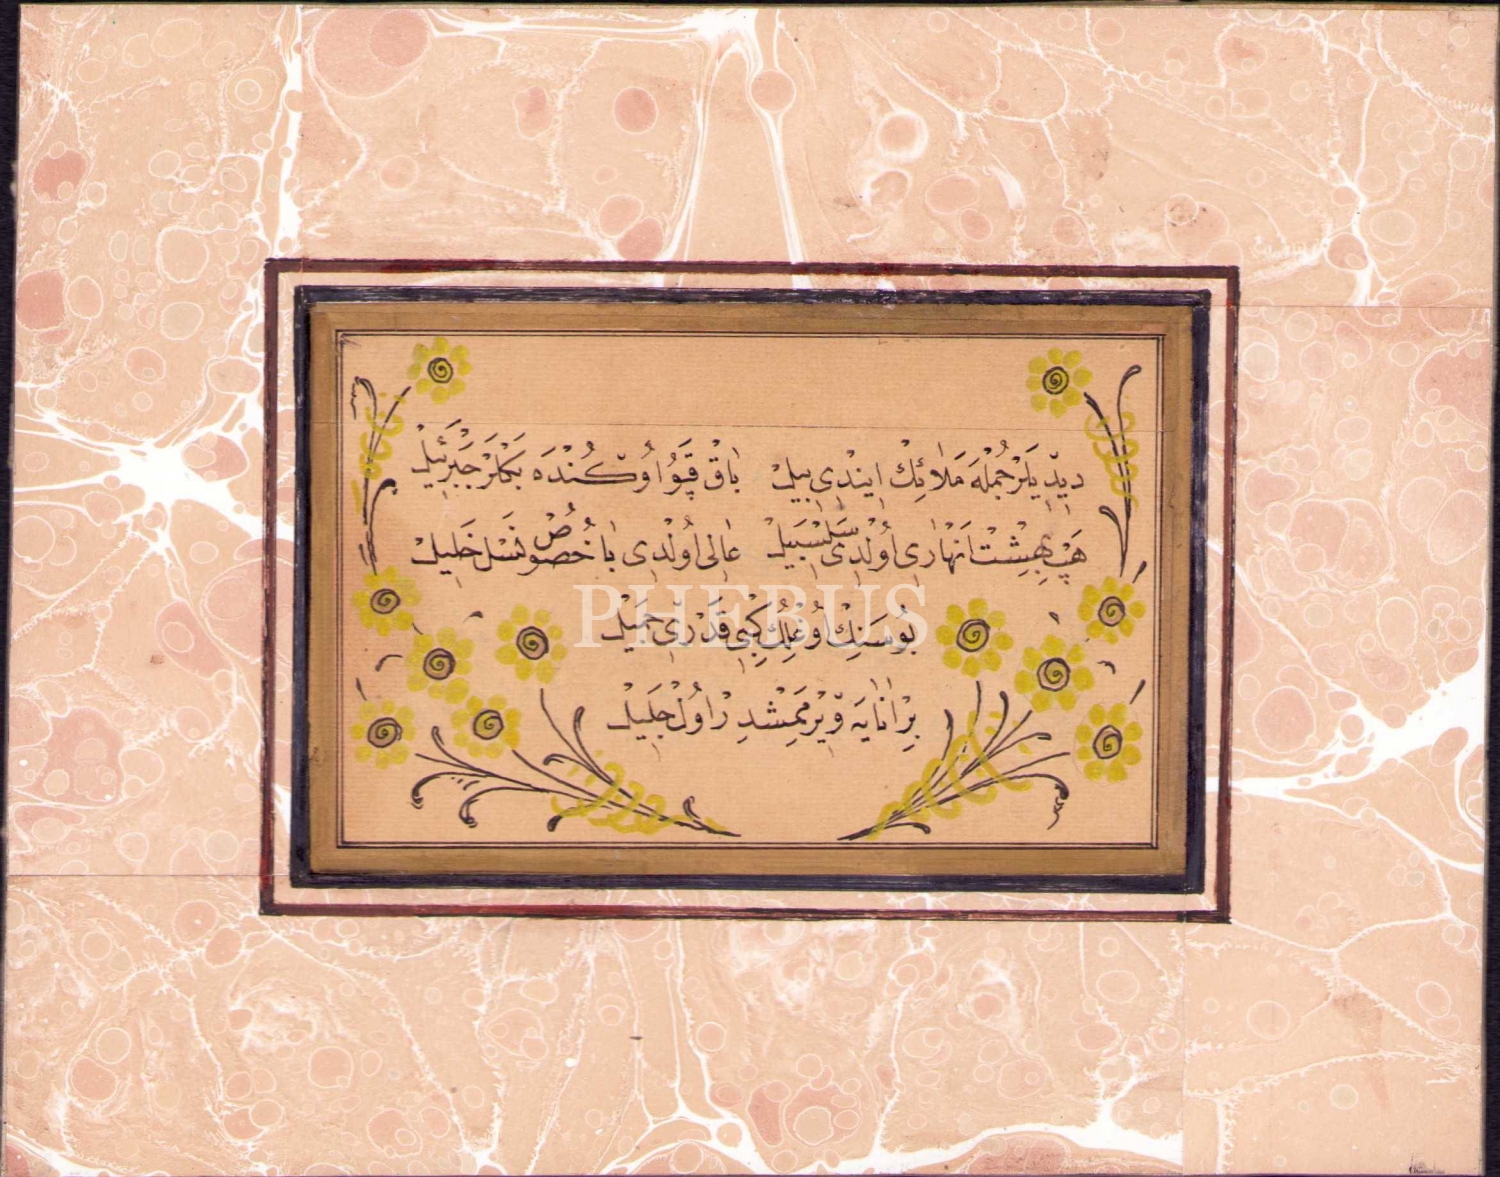 ديديلر جمله ملائك ايندى بيل باق قپو اوكنده بكلر جبرئيل
هپ بهشت انهارى اولدى سلسبيل عالى اولدى با خصوص نسل خليل
بو سنك اوغلك كبى قدرى جميل
بر انايه ويرممشدر اول جليل
PHEBUS